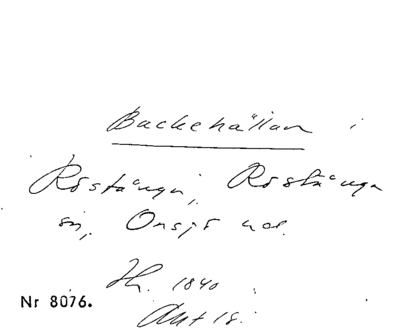 Backehällan i
Röstånga, Röstånga
sn, Onsjö hd.
Th. 1840
Nr 8076.
Akt 18.